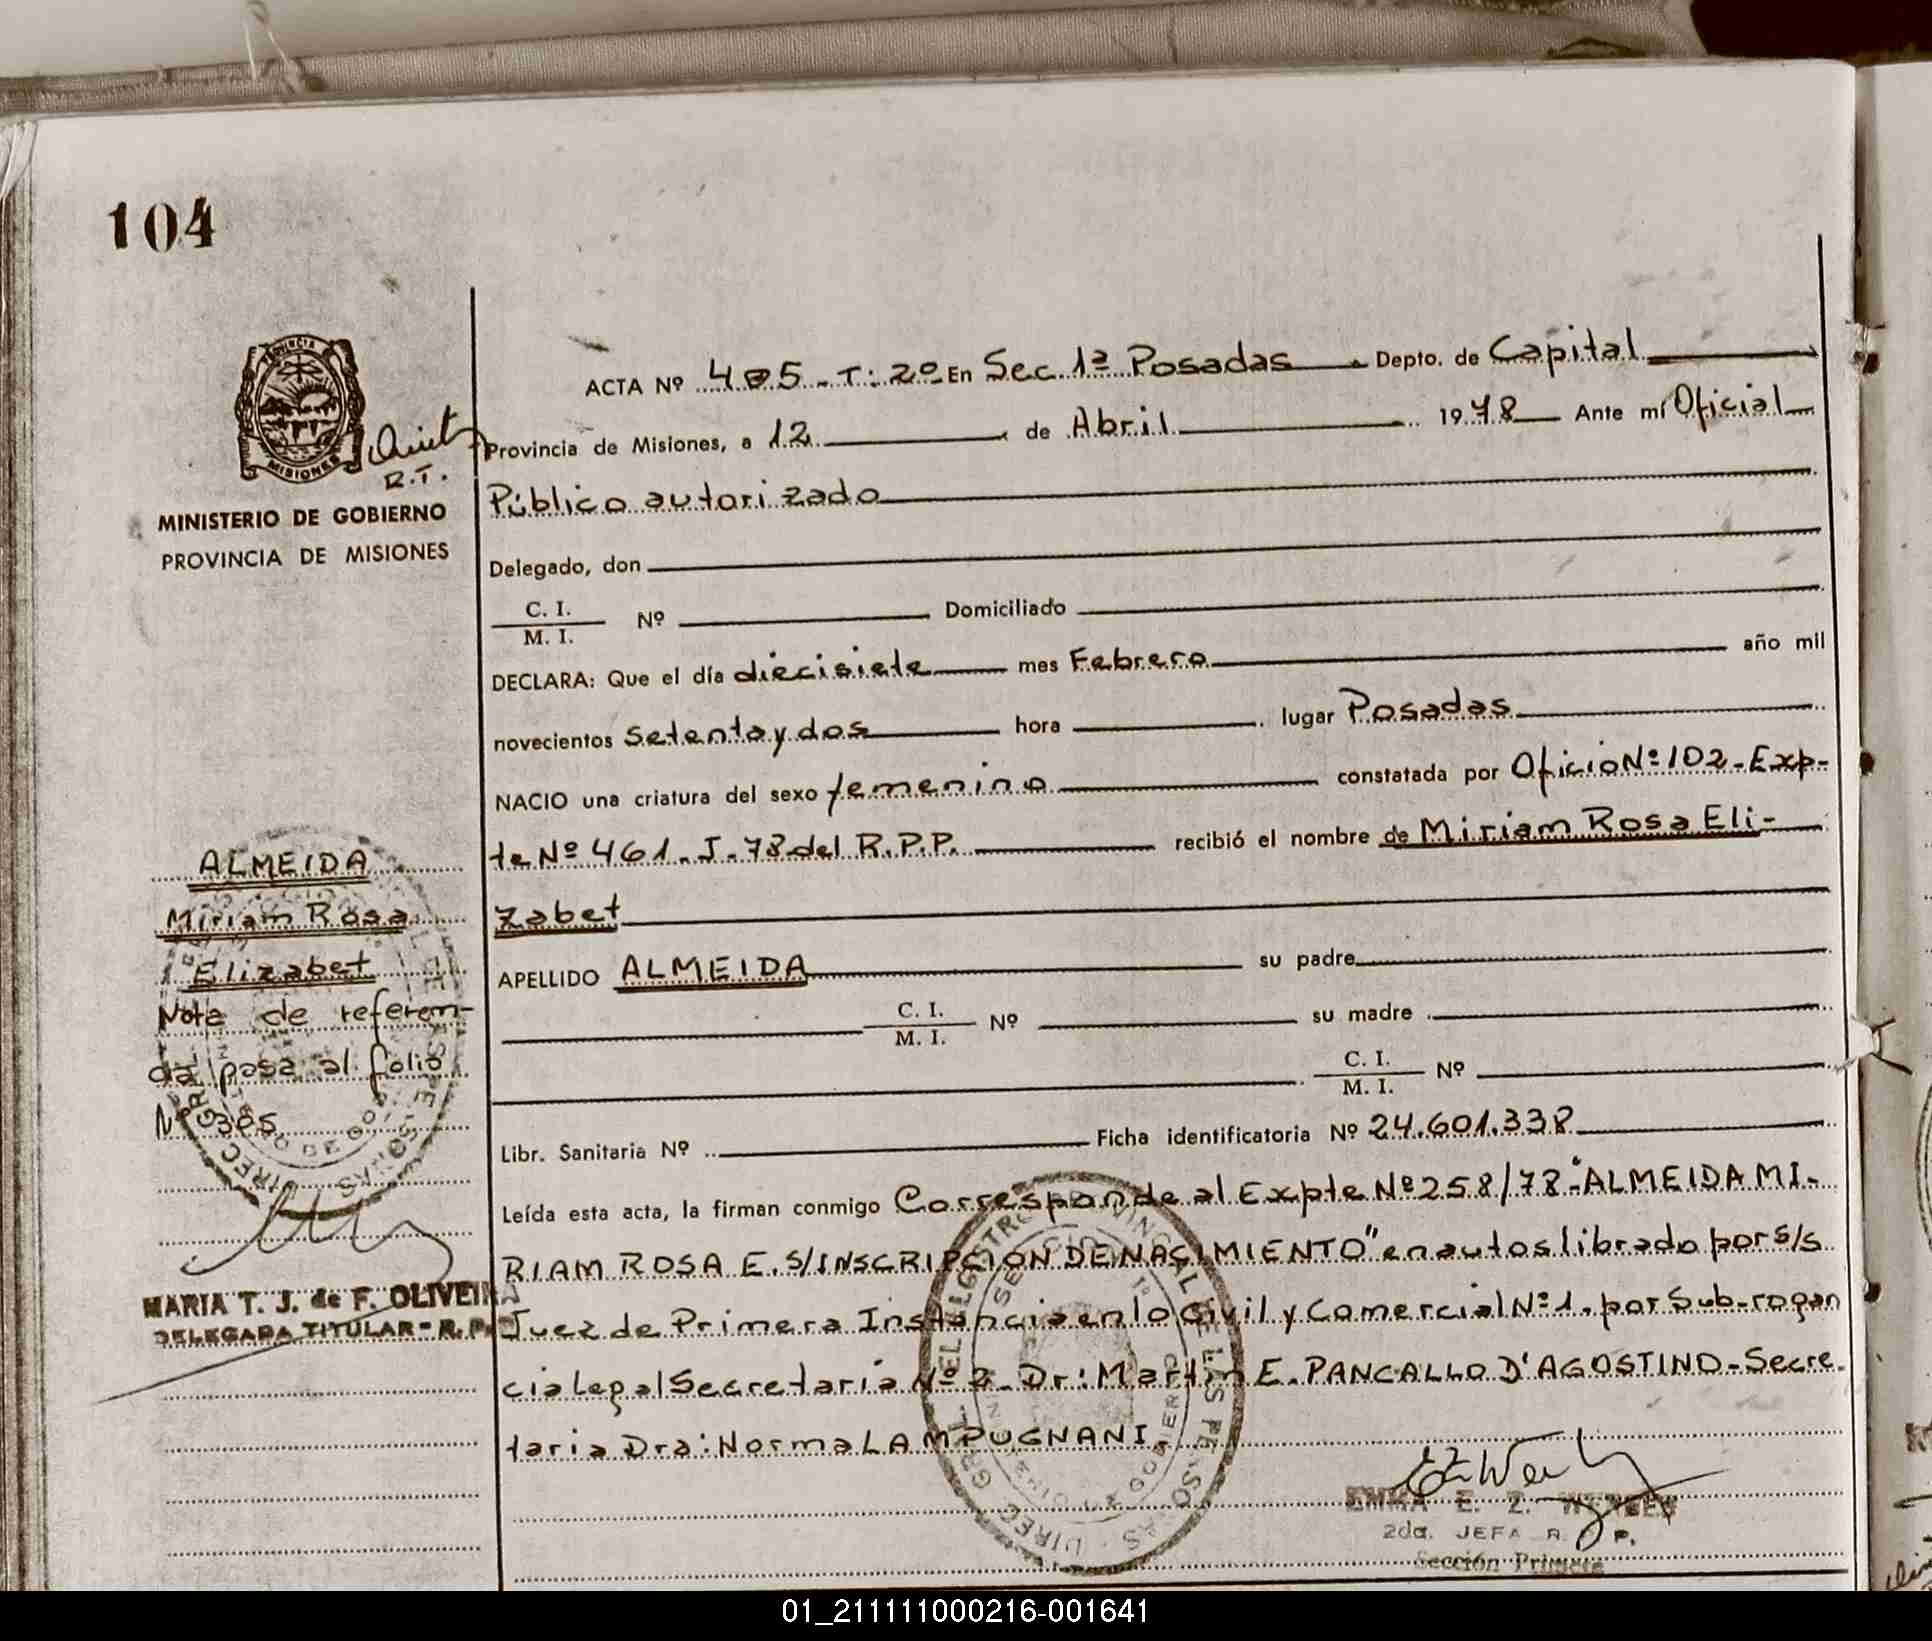 104
PROVINCIA
MISIONES
R.T.
MINISTERIO DE GOBIERNO
PROVINCIA DE MISIONES
ACTA Nº 405 - T: 2º En Sec. 1ª Posadas Depto. de Capital
Provincia de Misiones, a 12 de Abril 1978 Ante mí Oficial
Público autorizado
Delegado, don
C. I.
M. I. Nº Domiciliado
DECLARA: Que el día diecisiete mes Febrero año mil
novecientos setenta y dos hora lugar Posadas
NACIO una criatura del sexo femenino constatada por Oficio Nº 102 - Exp-
te Nº 461. J-78 del R.P.P. recibió el nombre de Miriam Rosa Eli-
zabet
APELLIDO ALMEIDA su padre
C. I.
M. I. Nº su madre
C. I.
M. I. Nº
Libr. Sanitaria Nº Ficha identificatoria Nº 24.601.338
Leída esta acta, la firman conmigo Corresponde al Expte Nº 258/78 - "ALMEIDA MI-
RIAM ROSA E. S/INSCRIPCION DE NACIMIENTO" en autos librado por S/S
Juez de Primera Instancia en lo Civil y Comercial Nº 1. por Sub-rogan
cia Legal Secretaría Nº 2. Dr: Martin E. PANCALLO D'AGOSTINO - Secre-
taria Dra: Norma LAMPUGNANI.
ALMEIDA
Miriam Rosa
Elizabet
Nota de referen-
cia pasa al folio
Nº 385
MARIA T. J. de F. OLIVEIRA
DELEGADA TITULAR - R. P.
EMMA E. Z.
2da. JEFA R. P.
Sección Primera
01_211111000216-001641